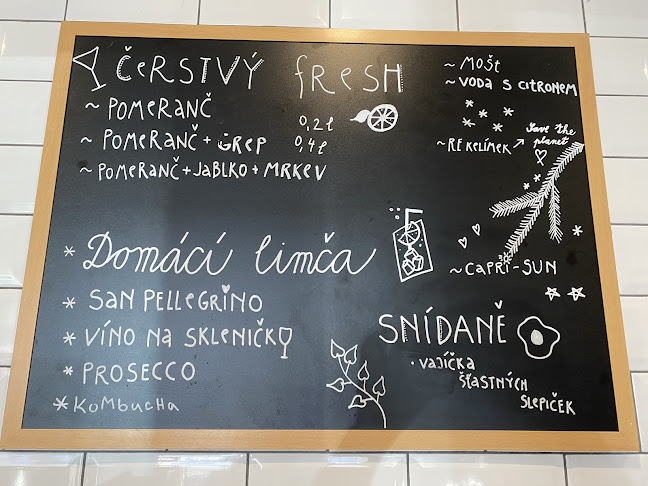 ČERSTVÝ FRESH
~ POMERANČ
~ POMERANČ + GREP
~ POMERANČ + JABLKO + MRKEV
0,2l
0,4l
~ MOŠT
~ VODA S CITRONEM
Save the
planet
~ RE KELÍMEK
* Domácí limča
* SAN PELLEGRINO
* VÍNO NA SKLENIČKY
* PROSECCO
* KOMBUCHA
~ CAPRI-SUN
SNÍDANĚ
· VAJÍČKA
ŠŤASTNÝCH
SLEPIČEK